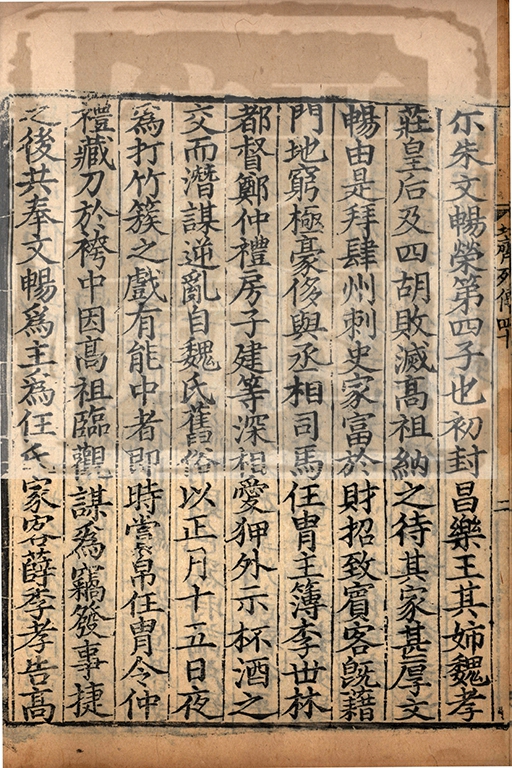 尒朱文暢榮第四子也初封昌樂王其姉魏孝
莊皇后及四胡敗滅髙祖納之待其家甚厚文
暢由是拜肆州刺史家富於財招致賓客旣藉
門地窮極豪侈與丞相司馬任胄主簿李世林
都督鄭仲禮房子建等深相愛狎外示杯酒之
交而潛謀逆亂自魏氏舊俗以正月十五日夜
爲打竹簇之戲有能中者即時賞帛任胄令仲
禮藏刀於袴中因髙祖臨觀謀爲竊發事捷
之後共奉文暢爲主爲任氏家客薛季孝告髙
齊列傳四十
二